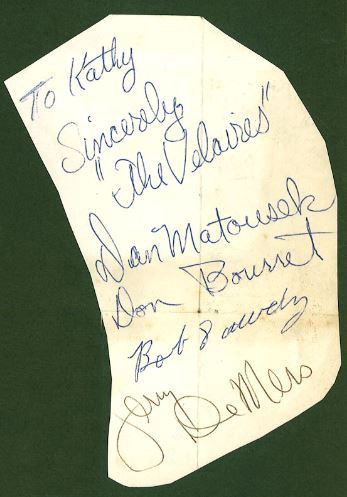 To Kathy
Sincerely,
"The Velaires"
Dan Matousek
Don Bourret
Bob Dawdy
Jerry De Mers